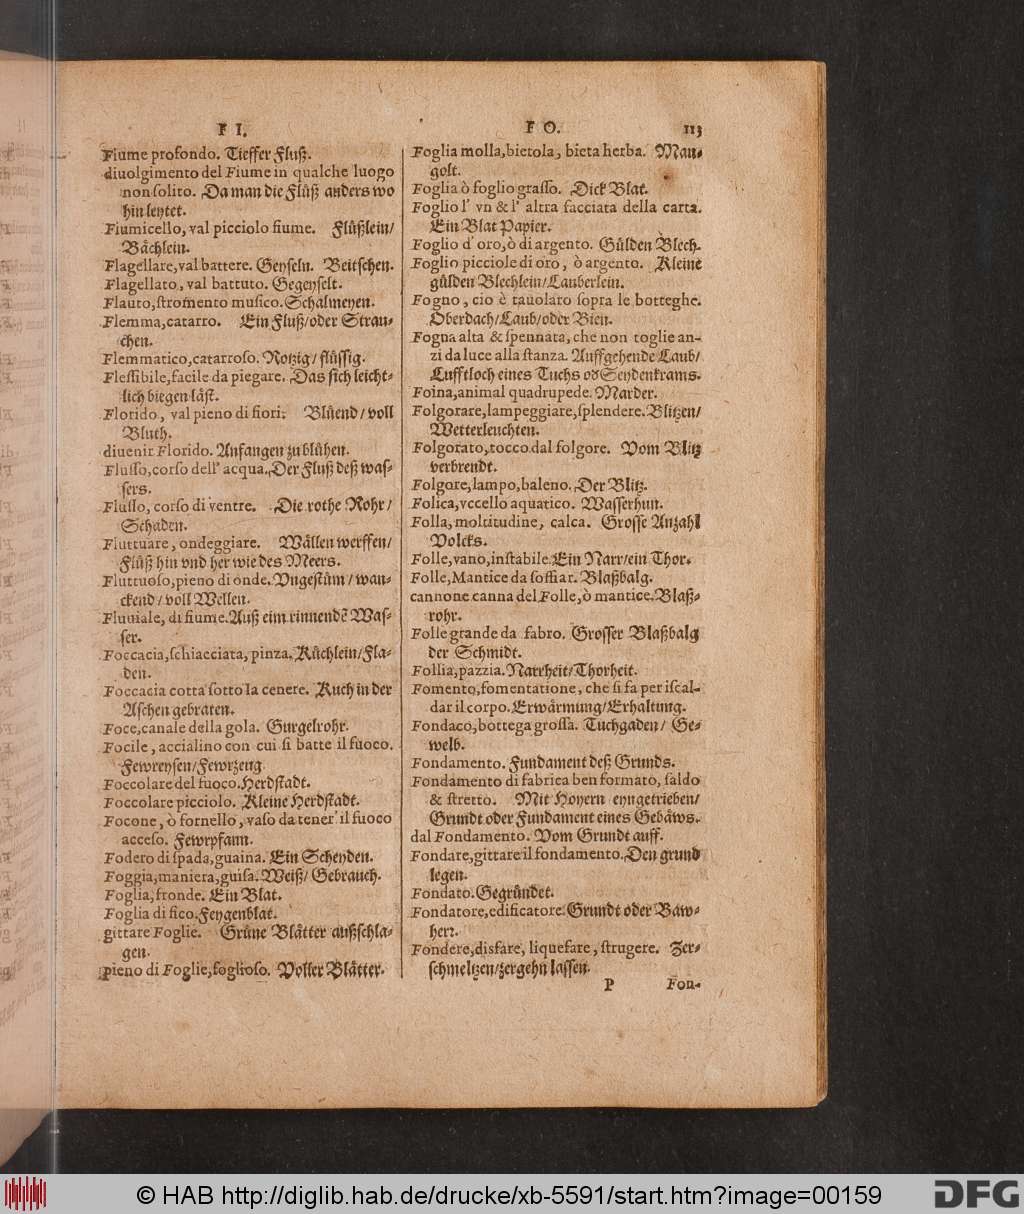 F I.
Fiume profondo. Tieffer Fluß.
diuolgimento del Fiume in qualche luogo
non solito. Da man die Flüß anders wo
hin leytet.
Fiumicello, val picciolo fiume. Flüßlein/
Bächlein.
Flagellare, val battere. Geyseln. Beitschen.
Flagellato, val battuto. Gegeyselt.
Flauto, stromento musico. Schalmeyen.
Flemma, catarro. Ein Fluß/oder Strau-
chen.
Flemmatico, catarroso. Rotzig/ flüssig.
Flessibile, facile da piegare. Das sich leicht-
lich biegen läst.
Florido, val pieno di fiori. Blüend/ voll
Bluth.
diuenir Florido. Anfangen zu blühen.
Flusso, corso dell' acqua. Der Fluß deß was-
sers.
Flusso, corso di ventre. Die rothe Rohr/
Schaden.
Fluttuare, ondeggiare. Wällen werffen/
Flüß hin vnd her wie des Meers.
Fluttuoso, pieno di onde. Vngestüm/ wan-
ckend/ voll Wellen.
Fluuiale, di fiume. Auß eim rinnendē Was-
ser.
Foccacia, schiacciata, pinza. Küchlein/Fla-
den.
Foccacia cotta sotto la cenere. Kuch in der
Aschen gebraten.
Foce, canale della gola. Gurgelrohr.
Focile, accialino con cui si batte il fuoco.
Fewreysen/Fewrzeug
Foccolare del fuoco. Herdstadt.
Foccolare picciolo. Kleine Herdstadt.
Focone, ò fornello, vaso da tener' il fuoco
acceso. Fewrpfann.
Fodero di spada, guaina. Ein Scheyden.
Foggia, maniera, guisa. Weiß/ Gebrauch.
Foglia, fronde. Ein Blat.
Foglia di fico. Feygenblat.
gittare Foglie. Grüne Blätter außschla-
gen.
pieno di Foglie, foglioso. Voller Blätter.
F O. 113
Foglia molla, bietola, bieta herba. Man-
golt.
Foglia ò foglio grasso. Dick Blat.
Foglio l' vn & l' altra facciata della carta.
Ein Blat Papier.
Foglio d' oro, ò di argento. Gülden Blech.
Foglio picciole di oro, ò argento. Kleine
gülden Blechlein/Lauberlein.
Fogno, cio è tauolato sopra le botteghe.
Oberdach/Laub/oder Bien.
Fogna alta & spennata, che non toglie an-
zi da luce alla stanza. Auffgehende Laub/
Lufftloch eines Tuchs oď Seydenkrams.
Foina, animal quadrupede. Marder.
Folgorare, lampeggiare, splendere. Blitzen/
Wetterleuchten.
Folgorato, tocco dal folgore. Vom Blitz
verbrendt.
Folgore, lampo, baleno. Der Blitz.
Folica, vccello aquatico. Wasserhun.
Folla, moltitudine, calca. Grosse Anzahl
Volcks.
Folle, vano, instabile. Ein Narr/ein Thor.
Folle, Mantice da soffiar. Blaßbalg.
cannone canna del Folle, ò mantice. Blaß-
rohr.
Folle grande da fabro. Grosser Blaßbalg
der Schmidt.
Follia, pazzia. Narrheit/Thorheit.
Fomento, fomentatione, che si fa per iscal-
dar il corpo. Erwärmung/Erhaltung.
Fondaco, bottega grossa. Tuchgaden/ Ge-
welb.
Fondamento. Fundament deß Grunds.
Fondamento di fabrica ben formato, saldo
& stretto. Mit Hoyern eyngetrieben/
Grundt oder Fundament eines Gebäws.
dal Fondamento. Vom Grundt auff.
Fondare, gittare il fondamento. Den grund
legen.
Fondato. Gegründet.
Fondatore, edificatore. Grundt oder Baw-
herr.
Fondere, disfare, liquefare, strugere. Zer-
schmeltzen/zergehn lassen.
P Fon-
© HAB http://diglib.hab.de/drucke/xb-5591/start.htm?image=00159
DFG